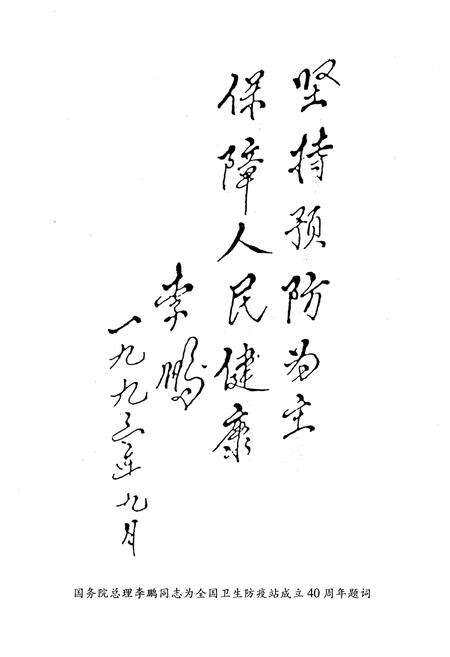 坚持预防为主
保障人民健康
李鹏
一九九三年九月
国务院总理李鹏同志为全国卫生防疫站成立40周年题词